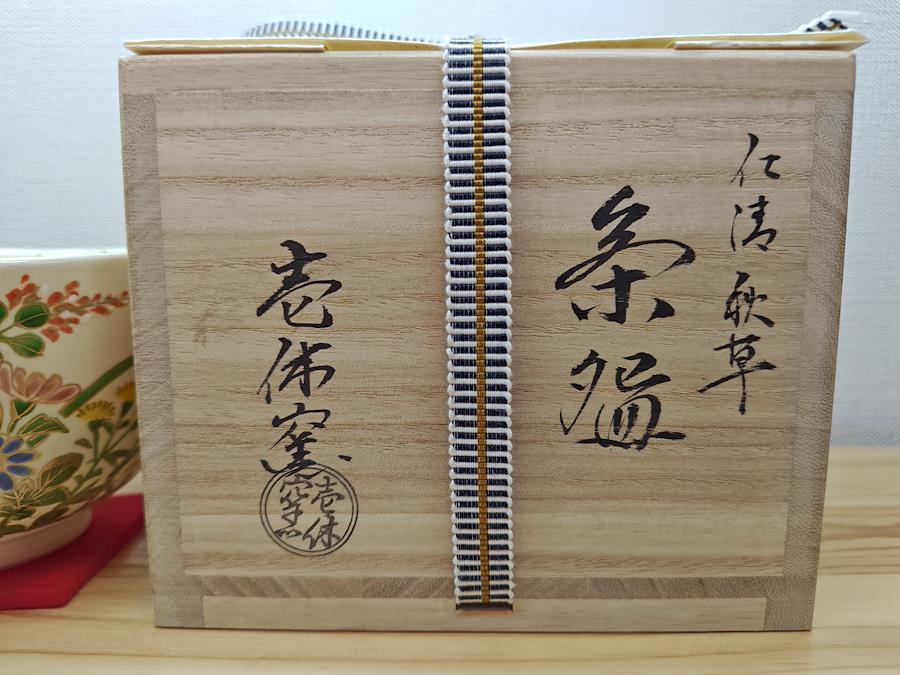 仁清 秋草
茶盌
壱休窯
壱休